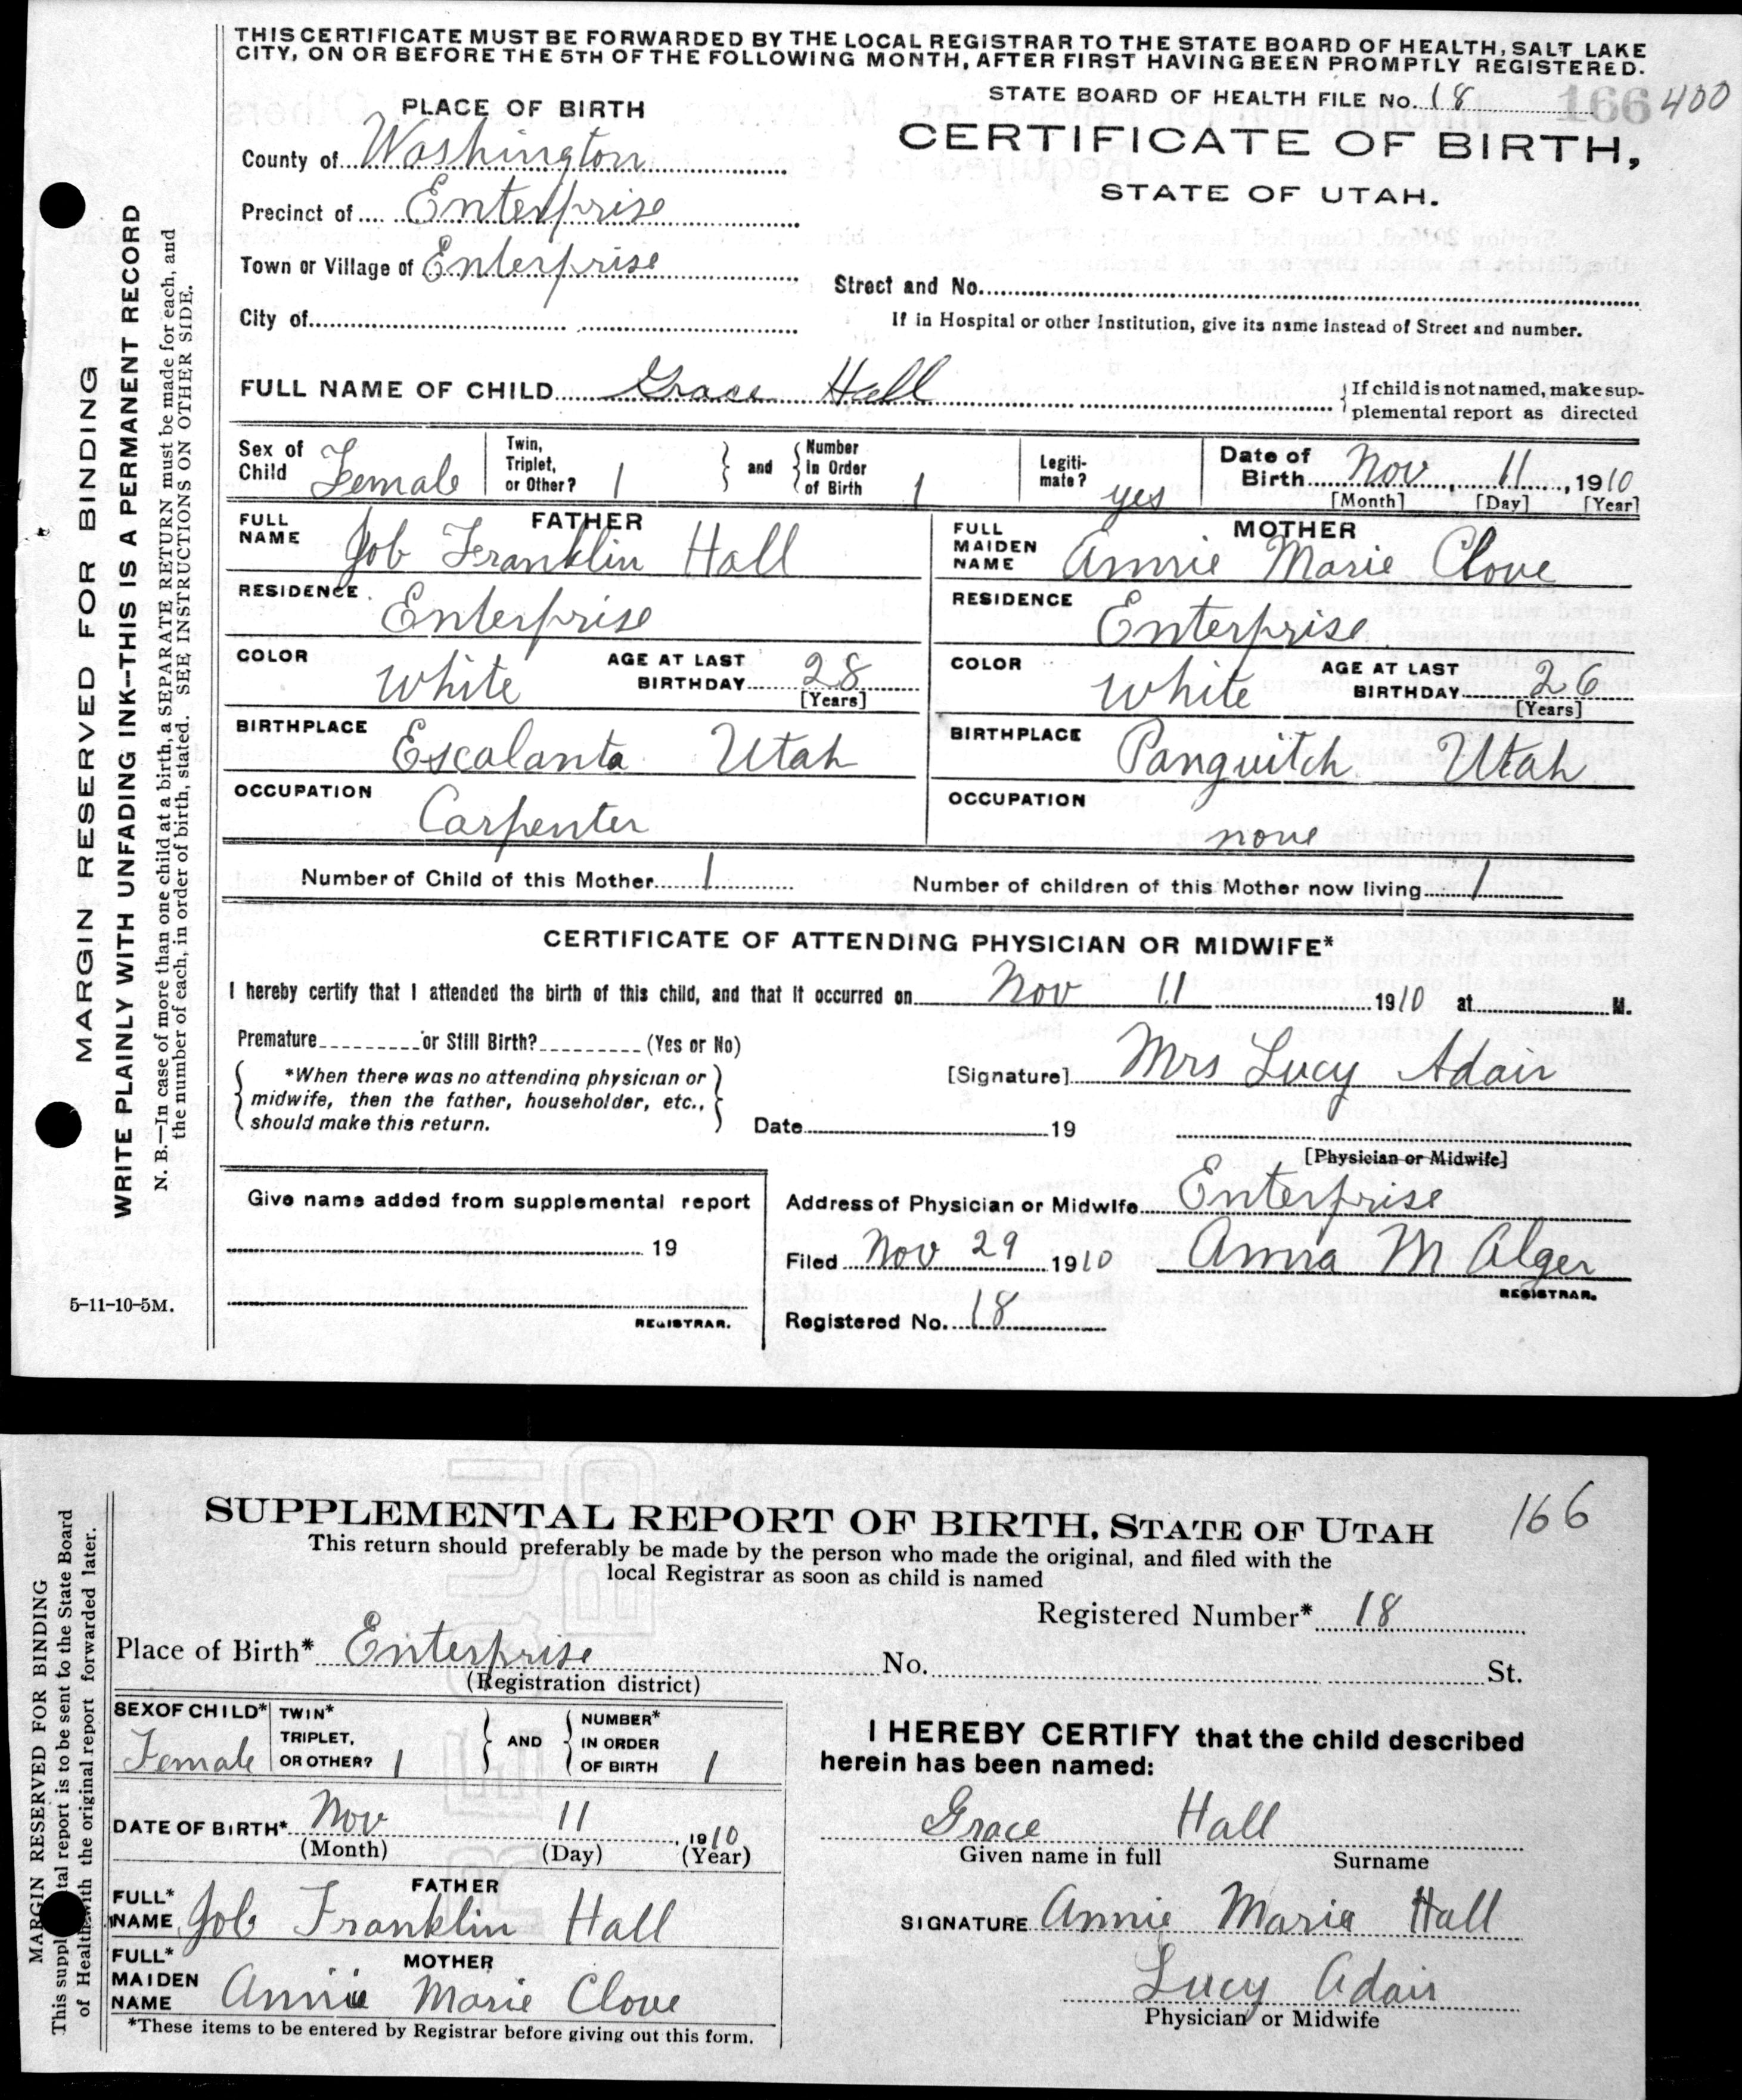 THIS CERTIFICATE MUST BE FORWARDED BY THE LOCAL REGISTRAR TO THE STATE BOARD OF HEALTH, SALT LAKE
CITY, ON OR BEFORE THE 5TH OF THE FOLLOWING MONTH, AFTER FIRST HAVING BEEN PROMPTLY REGISTERED.
STATE BOARD OF HEALTH FILE No. 18 166 400
PLACE OF BIRTH
CERTIFICATE OF BIRTH,
STATE OF UTAH.
County of Washington
Precinct of Enterprise
Town or Village of Enterprise
Street and No.
City of
If in Hospital or other Institution, give its name instead of Street and number.
FULL NAME OF CHILD Grace Hall
If child is not named, make sup-
plemental report as directed
Sex of Child Female
Twin, Triplet, or Other? 1
and
Number in Order of Birth 1
Legiti-mate? yes
Date of Birth Nov, 11, 1910
[Month] [Day] [Year]
FATHER
FULL NAME Job Franklin Hall
RESIDENCE Enterprise
COLOR White
AGE AT LAST BIRTHDAY 28
[Years]
BIRTHPLACE Escalanta Utah
OCCUPATION Carpenter
MOTHER
FULL MAIDEN NAME Annie Marie Clove
RESIDENCE Enterprise
COLOR White
AGE AT LAST BIRTHDAY 26
[Years]
BIRTHPLACE Panguitch Utah
OCCUPATION none
Number of Child of this Mother 1
Number of children of this Mother now living 1
CERTIFICATE OF ATTENDING PHYSICIAN OR MIDWIFE*
I hereby certify that I attended the birth of this child, and that it occurred on Nov 11 1910 at M.
Premature or Still Birth? (Yes or No)
*When there was no attending physician or
midwife, then the father, householder, etc.,
should make this return.
[Signature] Mrs Lucy Adair
Date 19
[Physician or Midwife]
Give name added from supplemental report
19
REGISTRAR.
Address of Physician or Midwife Enterprise
Filed Nov 29 1910 Anna M Alger
REGISTRAR.
Registered No. 18
MARGIN RESERVED FOR BINDING
WRITE PLAINLY WITH UNFADING INK--THIS IS A PERMANENT RECORD
N. B.—In case of more than one child at a birth, a SEPARATE RETURN must be made for each, and
the number of each, in order of birth, stated. SEE INSTRUCTIONS ON OTHER SIDE.
5-11-10-5M.
SUPPLEMENTAL REPORT OF BIRTH, STATE OF UTAH
166
This return should preferably be made by the person who made the original, and filed with the
local Registrar as soon as child is named
Registered Number* 18
Place of Birth* Enterprise No. St.
(Registration district)
SEX OF CHILD* Female
TWIN* TRIPLET, OR OTHER? 1
AND
NUMBER* IN ORDER OF BIRTH 1
DATE OF BIRTH* Nov 11, 1910
(Month) (Day) (Year)
FATHER
FULL* NAME Job Franklin Hall
MOTHER
FULL* MAIDEN NAME Annie Marie Clove
*These items to be entered by Registrar before giving out this form.
I HEREBY CERTIFY that the child described
herein has been named:
Grace Hall
Given name in full Surname
SIGNATURE Annie Maria Hall
Lucy Adair
Physician or Midwife
MARGIN RESERVED FOR BINDING
This suppl tal report is to be sent to the State Board
of Health with the original report forwarded later.